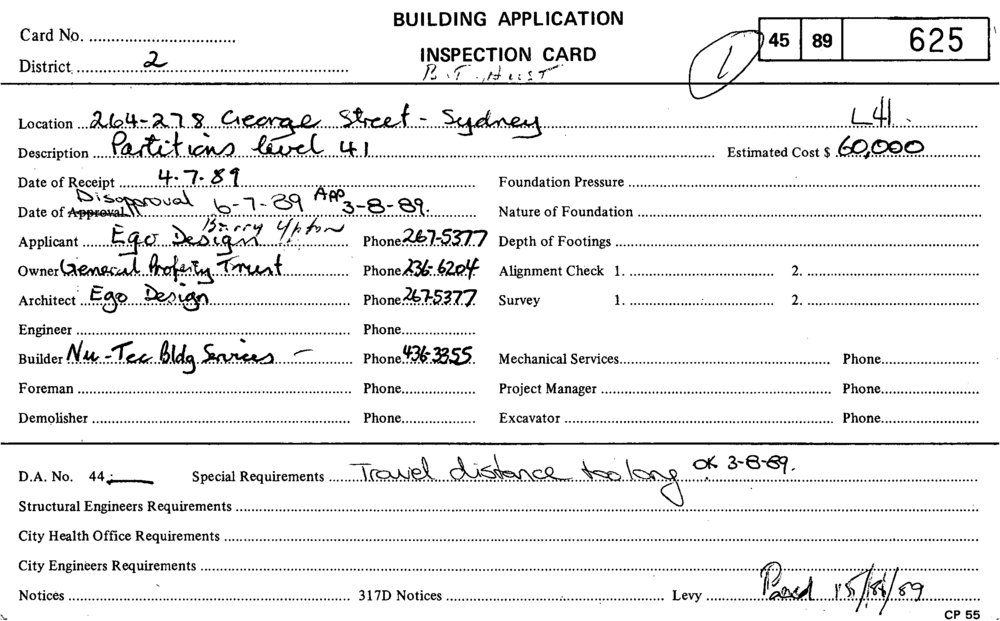 BUILDING APPLICATION
INSPECTION CARD
Card No.
District 2
45 89 625
1
L41.
Location 264-278 George Street - Sydney
Description Partitions level 41
Estimated Cost $ 60,000
Date of Receipt 4-7-89
Foundation Pressure
Disapproval
Date of Approval 6-7-89 APP 3-8-89.
Nature of Foundation
Barry Upton
Applicant Ego Design Phone 267-5377
Depth of Footings
Owner General Property Trust Phone 236-6204
Alignment Check 1. 2.
Architect Ego Design Phone 267-5377
Survey 1. 2.
Engineer Phone
Builder Nu-Tec Bldg Services - Phone 436-3355
Mechanical Services Phone
Foreman Phone
Project Manager Phone
Demolisher Phone
Excavator Phone
D.A. No. 44: Special Requirements Travel distance too long OK 3-8-89.
Structural Engineers Requirements
City Health Office Requirements
City Engineers Requirements
Notices 317D Notices Levy Paid /89
CP 55